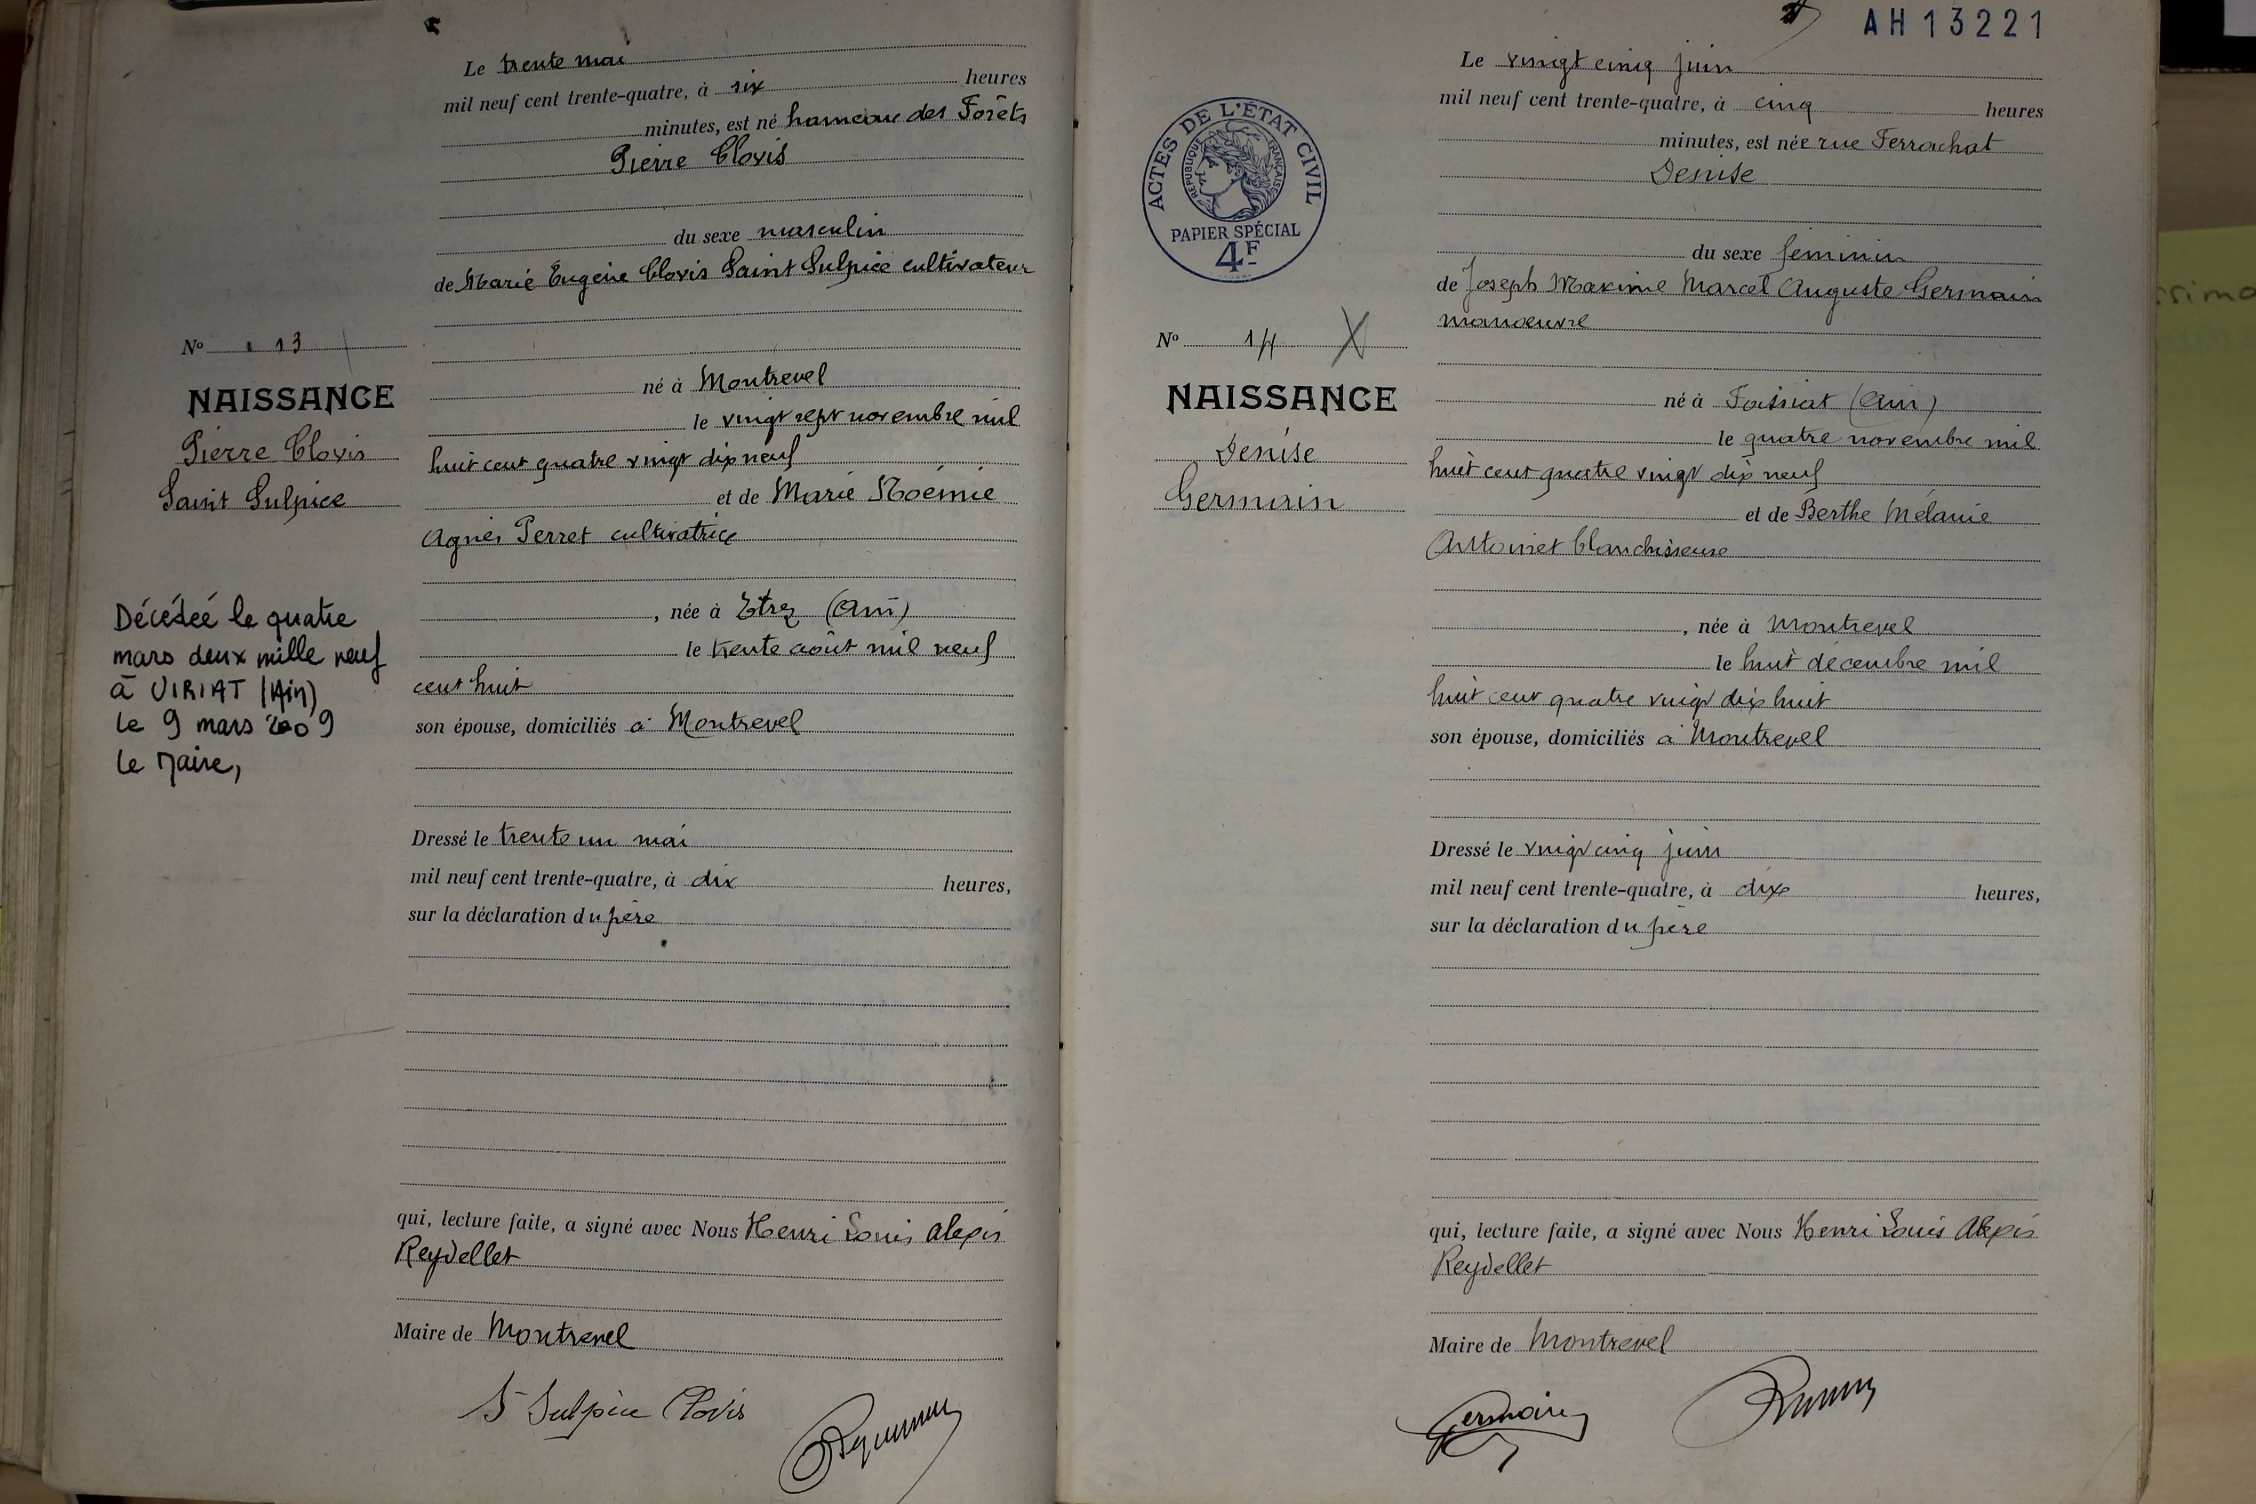 Le trente mai
mil neuf cent trente-quatre, à six heures
minutes, est né hameau des Forêts
Pierre Clovis
du sexe masculin
de Marie Eugène Clovis Saint Sulpice cultivateur
né à Montrevel
le vingt sept novembre mil
huit cent quatre vingt dix neuf
et de Marie Noémie
Agnès Perret cultivatrice
, née à Etrez (Ain)
le trente août mil neuf
cent huit
son épouse, domiciliés à Montrevel
Dressé le trente un mai
mil neuf cent trente-quatre, à dix heures,
sur la déclaration du père
qui, lecture faite, a signé avec Nous Henri Louis Alexis
Reydellet
Maire de Montrevel
St Sulpice Clovis
No 13
NAISSANCE
Pierre Clovis
Saint Sulpice
Décédée le quatre
mars deux mille neuf
à VIRIAT (Ain)
le 9 mars 2009
le Maire,
AH 13221
Le vingt cinq juin
mil neuf cent trente-quatre, à cinq heures
minutes, est née rue Ferrachat
Denise
du sexe féminin
de Joseph Maxime Marcel Auguste Germain
manoeuvre
né à Foissiat (Ain)
le quatre novembre mil
huit cent quatre vingt dix neuf
et de Berthe Mélanie
Antoinet blanchisseuse
, née à Montrevel
le huit décembre mil
huit cent quatre vingt dix huit
son épouse, domiciliés à Montrevel
Dressé le vingt cinq juin
mil neuf cent trente-quatre, à dix heures,
sur la déclaration du père
qui, lecture faite, a signé avec Nous Henri Louis Alexis
Reydellet
Maire de Montrevel
Germain
ACTES DE L'ÉTAT CIVIL
RÉPUBLIQUE FRANÇAISE
PAPIER SPÉCIAL
4F
No 14
NAISSANCE
Denise
Germain